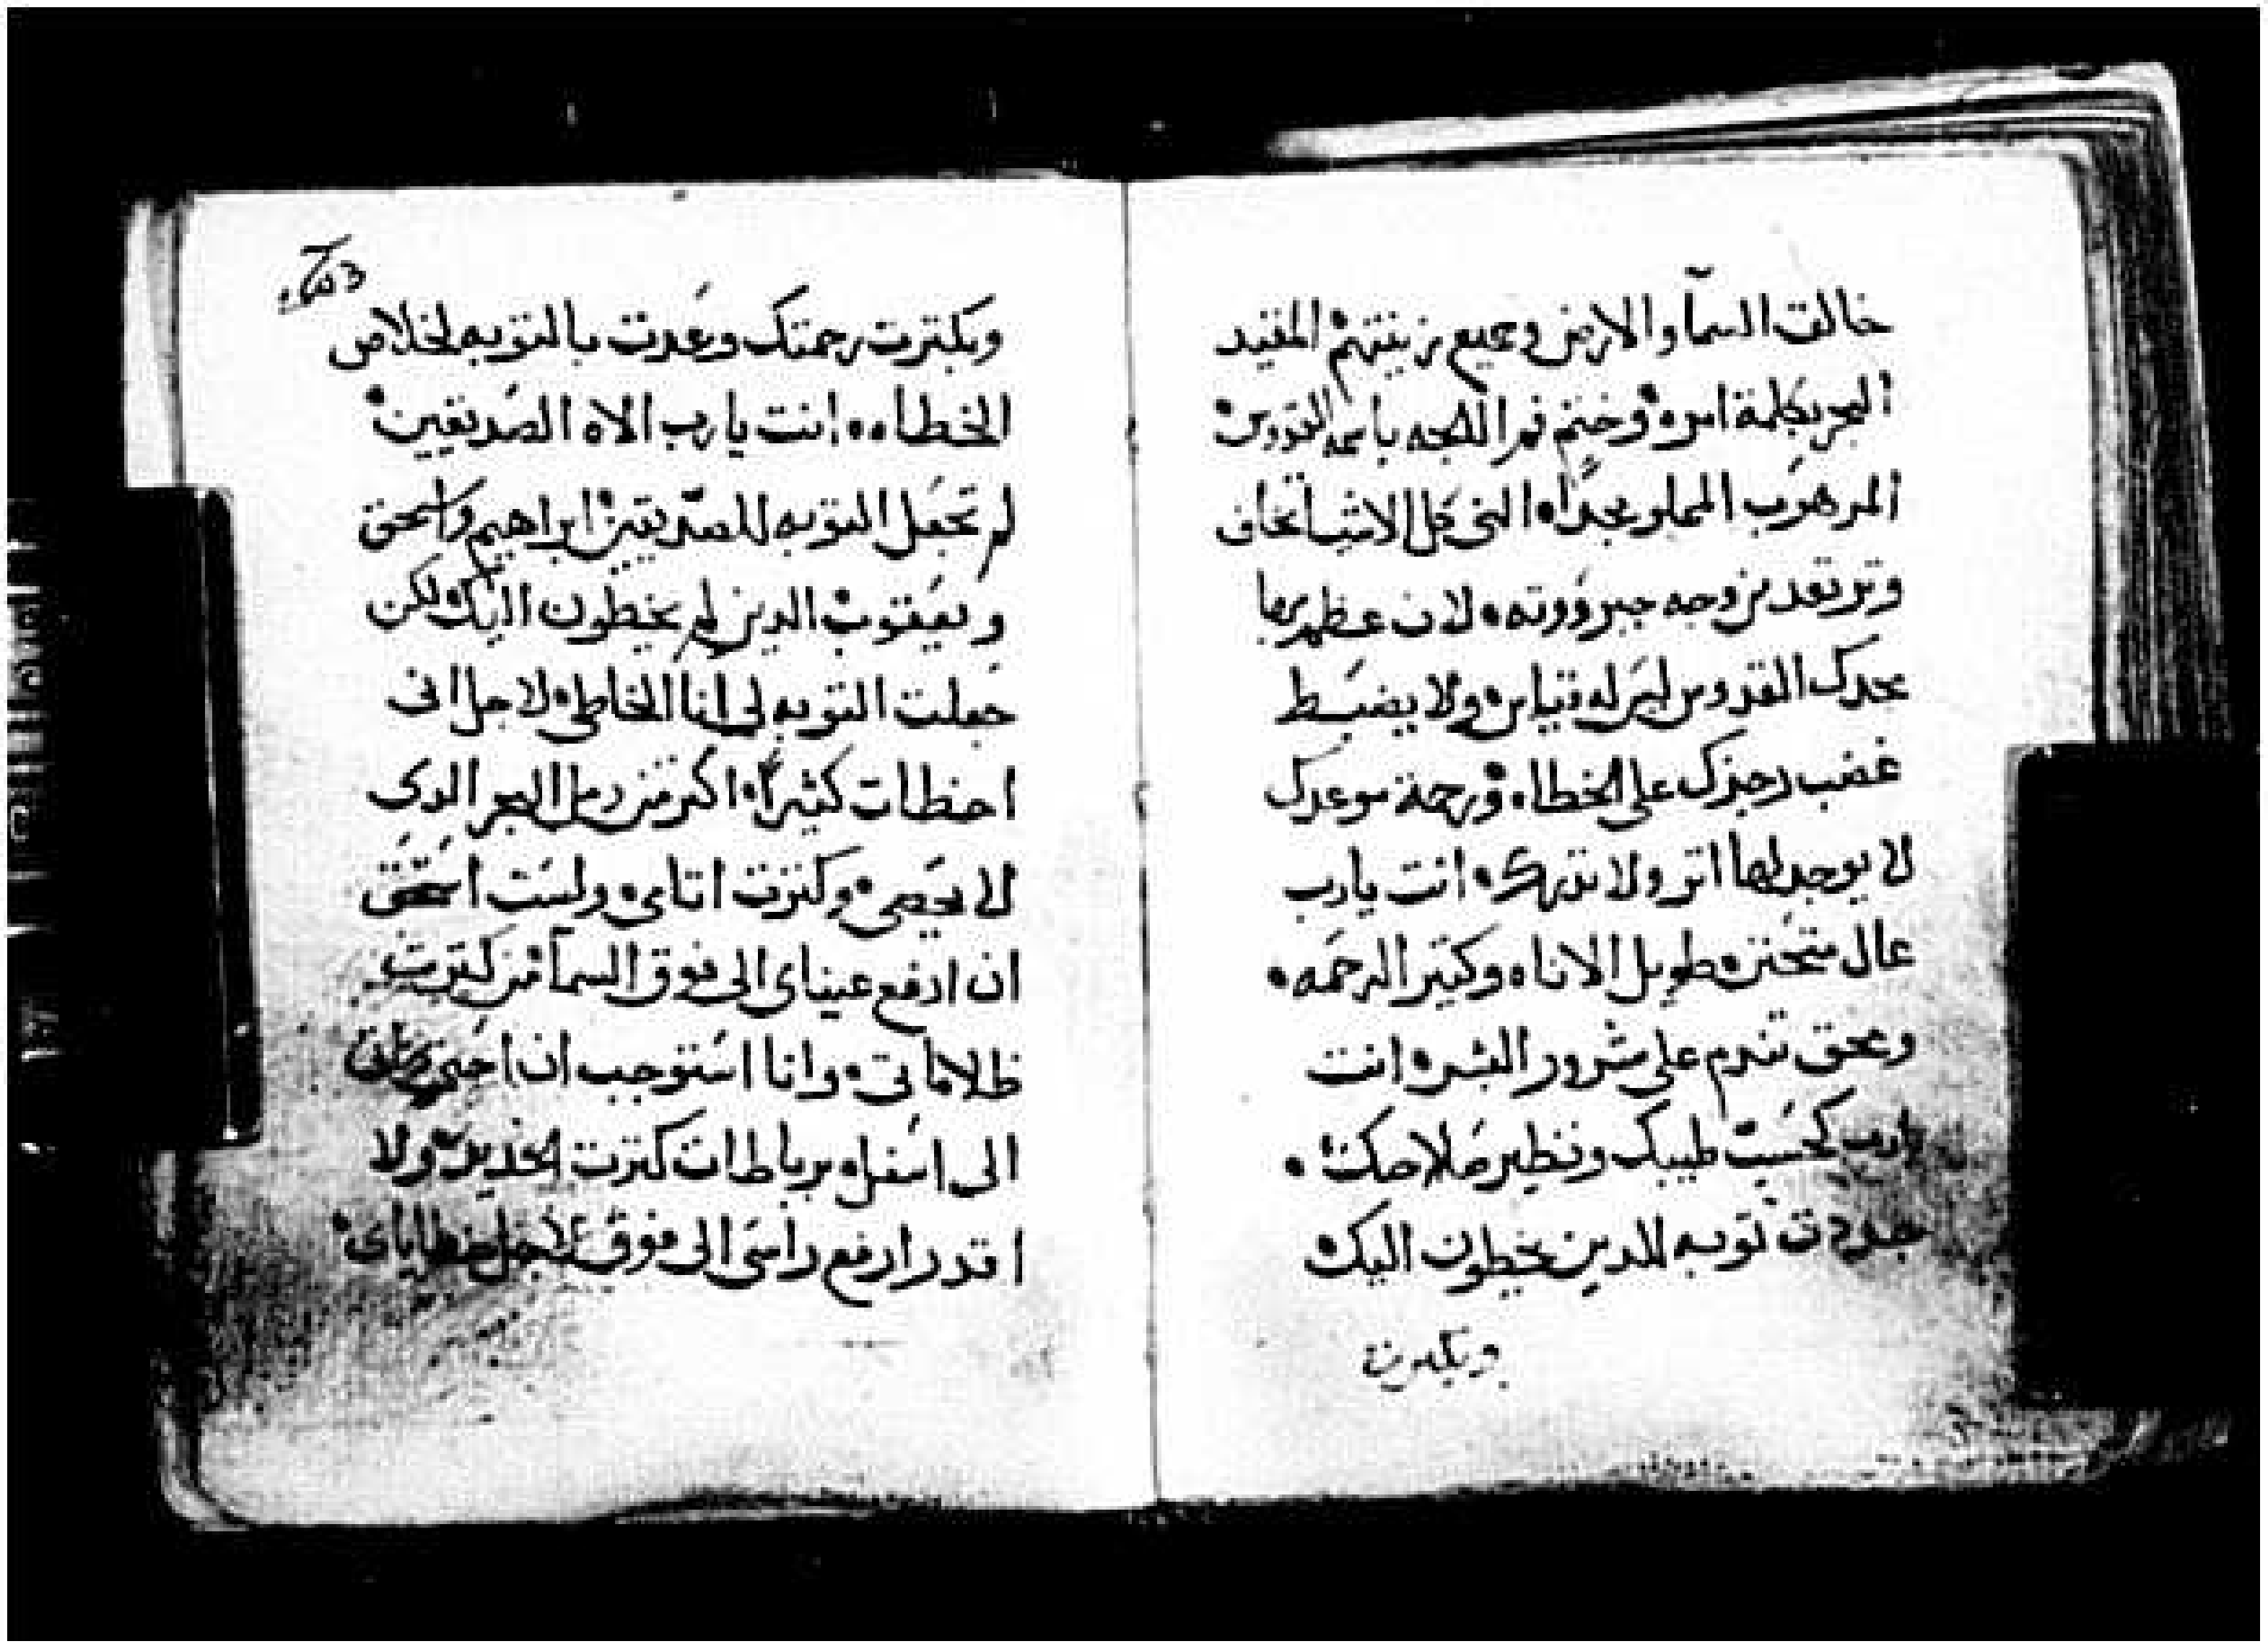 خالق السمآ والارض وجميع زينتهم المقيد
البحر بكلمة امره وختم فمر اللجه باسمه القدوس
المرهوب المملو مجدًا الني كل الاشيا تخاف
وترتعد من وجه جبرووته لان عظم بها
مجدك القدوس ليس له قياس ولا يضبط
غضب رجزك على الخطاه ورحمة موعدك
لا يوجد لها اتر ولا تدرك انت يارب
عال متحنن طويل الاناه وكتير الرحمه
وبحق تندم على شرور البشر انت
يارب كحسب طيبك ونظير صلاحك
حددت توبه للدين خطون اليك
وبكترت
وبكترت رحمتك وعدت بالتوبه لخلاص
الخطاه انت يارب الاه الصديقين
لم تجعل التوبه للصديقين ابراهيم واسحق
ويعقوب الدين لم يخطون اليك لكن
جعلت التوبه لي انا الخاطي لاجل انى
اخطات كثيرًا اكتر من رمل البحر الدى
لا يحصى وكترت اتاى وليست استحق
ان ارفع عيناى الى فوق السمآ من كترت
ظلاماتى وانا استوجب ان
الى اسفل برباطات كترت الحديد ولا
اقدر ارفع راسى الى فوق لاجل خطاياى